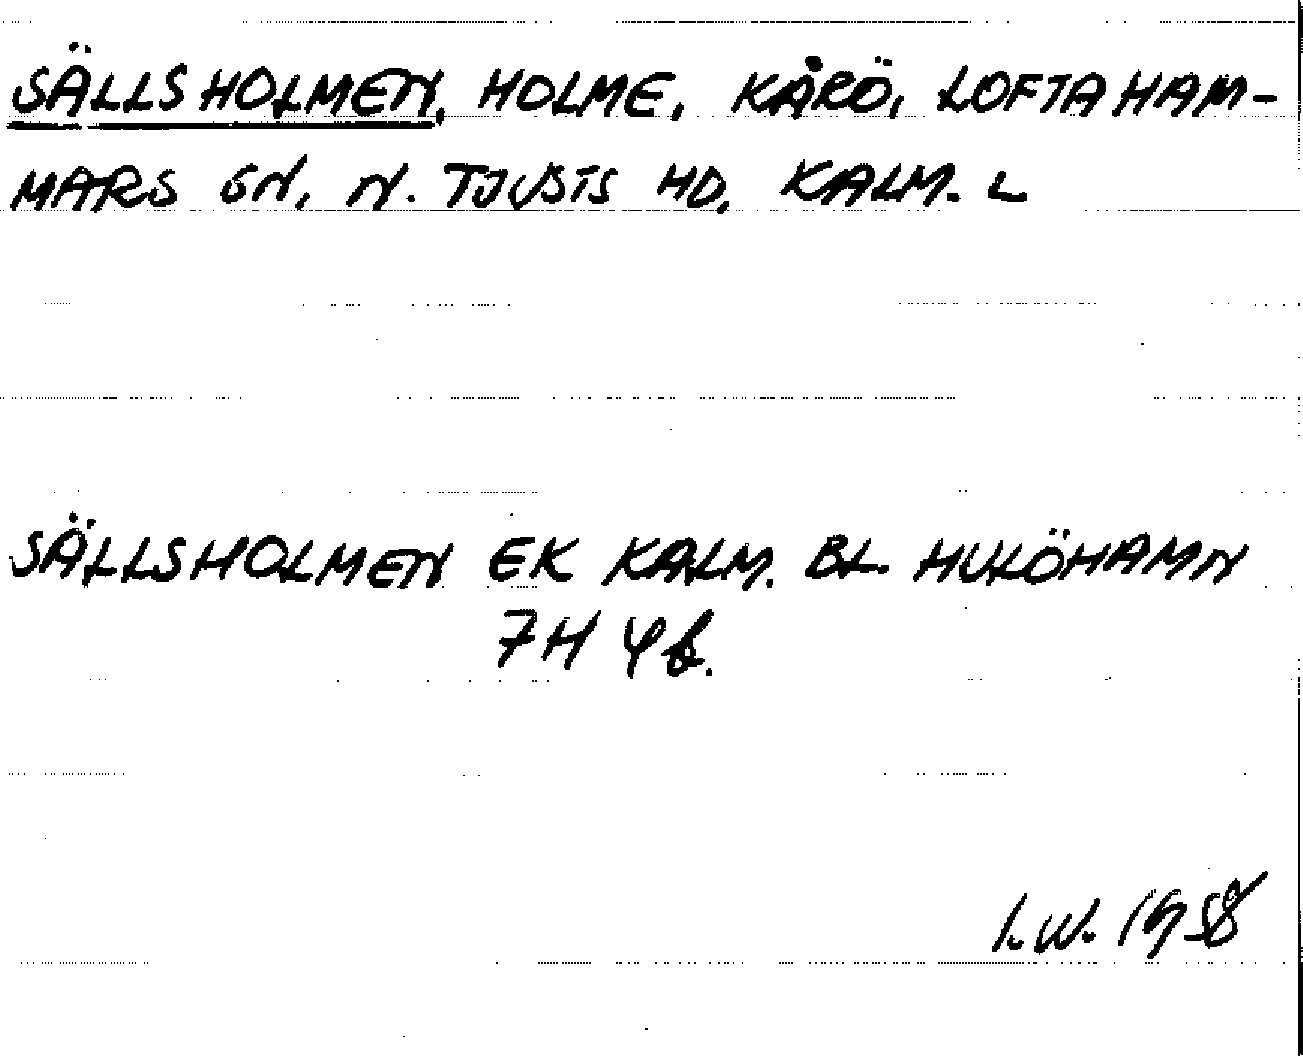 SÄLLSHOLMEN, HOLME, KÅRÖ, LOFTAHAM-
MARS SN, N. TJUSTS HD, KALM. L
SÄLLSHOLMEN EK KALM. BL. HULÖHAMN
7H 4f.
I.W. 1958